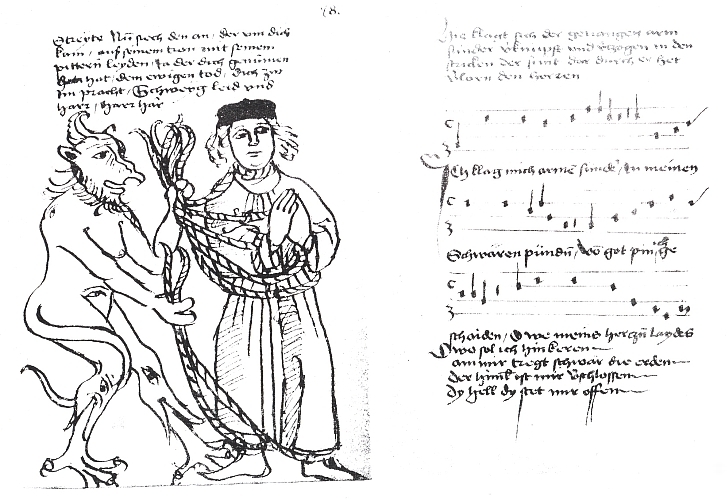 78.
Streyte Nũ siech den an / der vm dich
kam / auff seinem tron mit seinem
pittern leyden / In der dich genũmen
hat / dem ewigen tod / Dich zu
Im pracht / Schweyg leid vnd
harr / harr har
Hie klagt sich der gefangen arm
sünder vknüpft vnd vzogen in den
stricken der sünt dar durch er het
vlorn den herren
Ich klag mich armẽ sünder / In meinen
Schwären pündñ / võ got pin ich ge
schaiden / O we meins herczñ laydes
O wo sol ich hin keren
am mir tregt schwär die erden
der himl ist mir vschlossen
dy hell dy stet mir offen